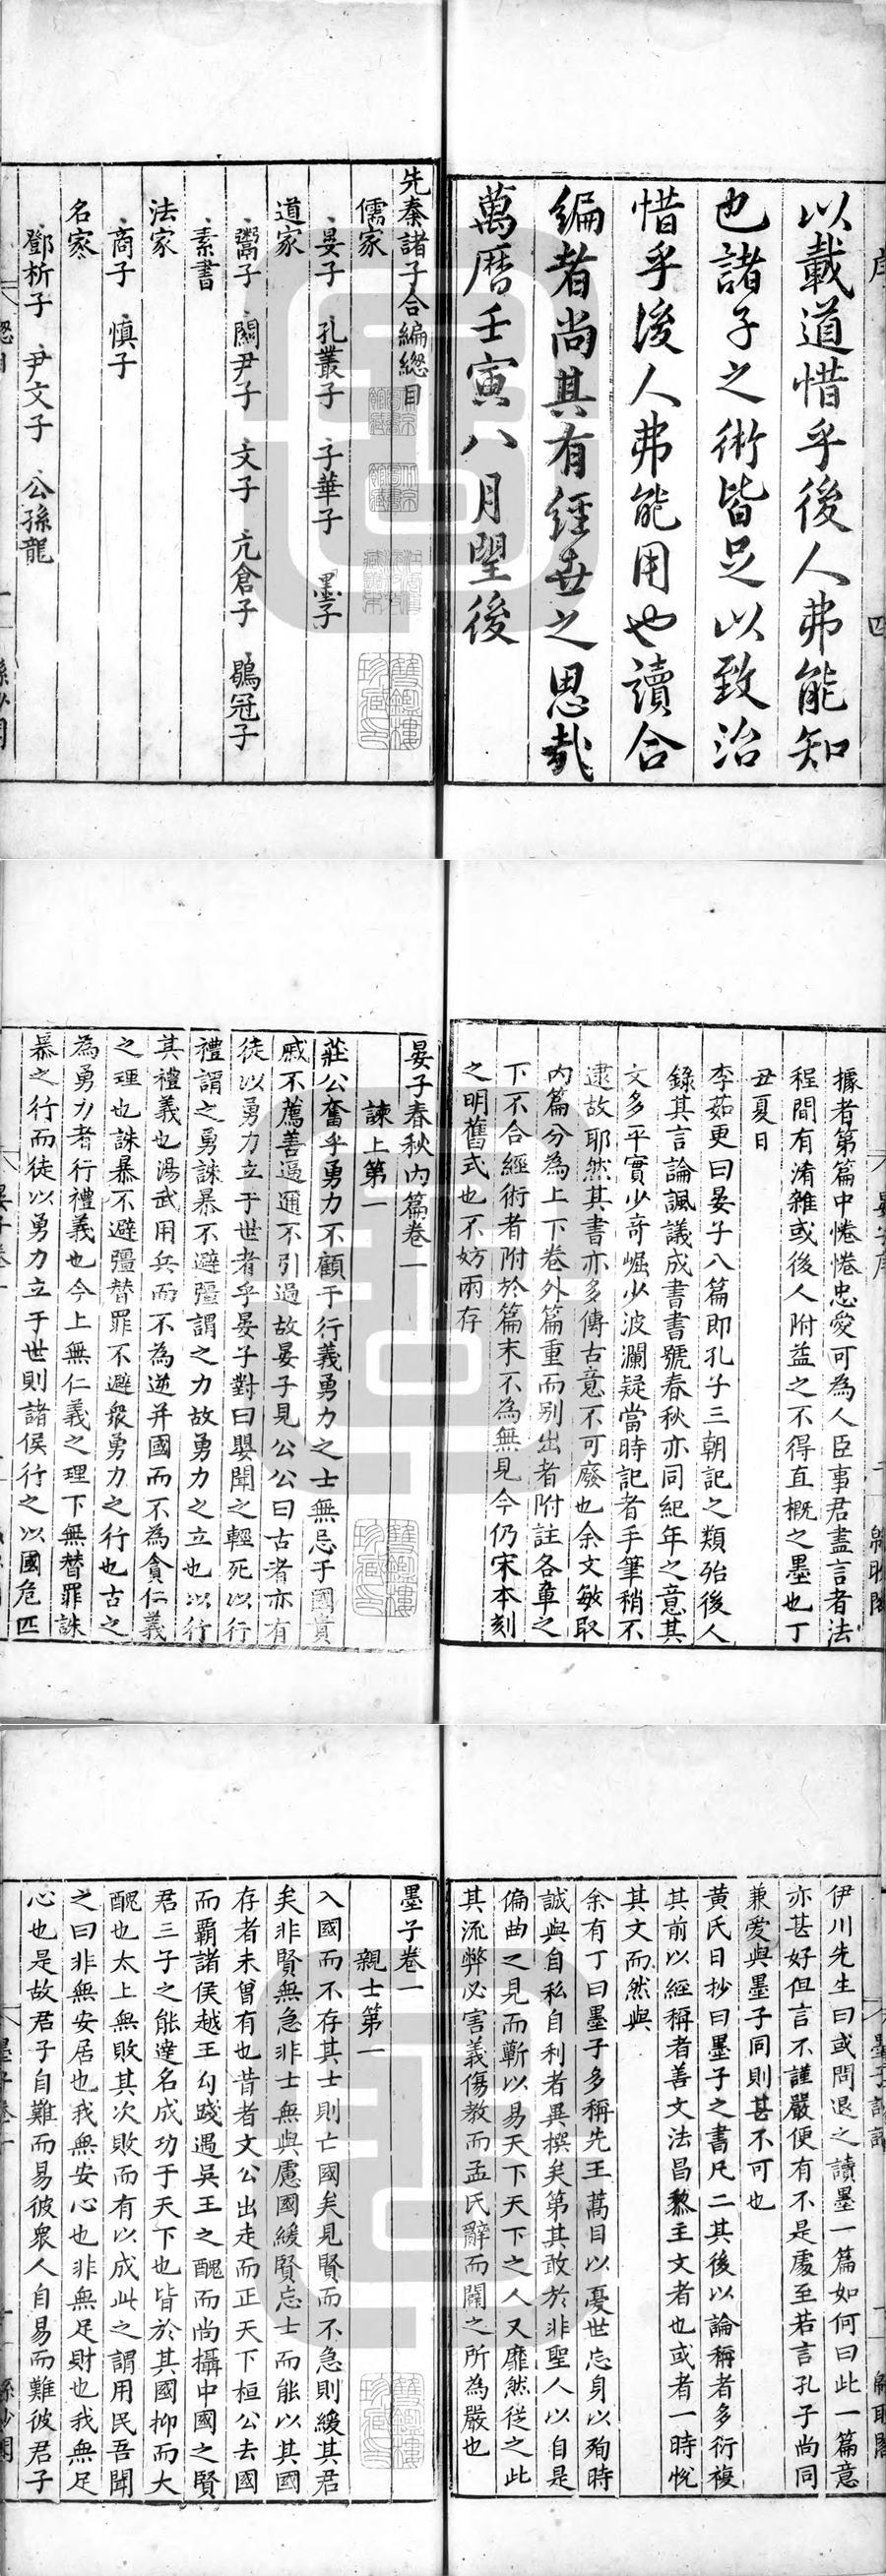 以載道惜乎後人弗能知
也諸子之術皆足以致治
惜乎後人弗能用也讀合
編者尚其有經世之思哉
萬曆壬寅八月望後
先秦諸子合編總目
儒家
晏子 孔叢子 子華子 墨子
道家
鬻子 關尹子 文子 亢倉子 鶡冠子
素書
法家
商子 慎子
名家
鄧析子 尹文子 公孫龍
據者第篇中惓惓忠愛可為人臣事君盡言者法
程間有淆雜或後人附益之不得直概之墨也丁
丑夏日
李茹更曰晏子八篇即孔子三朝記之類殆後人
錄其言論諷議成書書號春秋亦同紀年之意其
文多平實少奇崛少波瀾疑當時記者手筆稍不
逮故耶然其書亦多傳古意不可廢也余文敏取
內篇分為上下卷外篇重而別出者附註各章之
下不合經術者附於篇末不為無見今仍宋本刻
之明舊式也不妨兩存
晏子春秋內篇卷一
諫上第一
莊公奮乎勇力不顧于行義勇力之士無忌于國貴
戚不薦善逼邇不引過故晏子見公公曰古者亦有
徒以勇力立于世者乎晏子對曰嬰聞之輕死以行
禮謂之勇誅暴不避彊謂之力故勇力之立也以行
其禮義也湯武用兵而不為逆并國而不為貪仁義
之理也誅暴不避彊替罪不避衆勇力之行也古之
為勇力者行禮義也今上無仁義之理下無替罪誅
暴之行而徒以勇力立于世則諸侯行之以國危匹
伊川先生曰或問退之讀墨一篇如何曰此一篇意
亦甚好但言不謹嚴便有不是處至若言孔子尚同
兼愛與墨子同則甚不可也
黃氏日抄曰墨子之書凡二其後以論稱者多衍複
其前以經稱者善文法昌黎主文者也或者一時悅
其文而然與
余有丁曰墨子多稱先王蒿目以憂世忘身以殉時
誠與自私自利者異撰矣第其敢於非聖人以自是
偏曲之見而蘄以易天下天下之人又靡然從之此
其流弊必害義傷教而孟氏辭而闢之所為嚴也
墨子卷一
親士第一
入國而不存其士則亡國矣見賢而不急則緩其君
矣非賢無急非士無與慮國緩賢忘士而能以其國
存者未曾有也昔者文公出走而正天下桓公去國
而霸諸侯越王勾踐遇吳王之醜而尚攝中國之賢
君三子之能達名成功于天下也皆於其國抑而大
醜也太上無敗其次敗而有以成此之謂用民吾聞
之曰非無安居也我無安心也非無足財也我無足
心也是故君子自難而易彼衆人自易而難彼君子